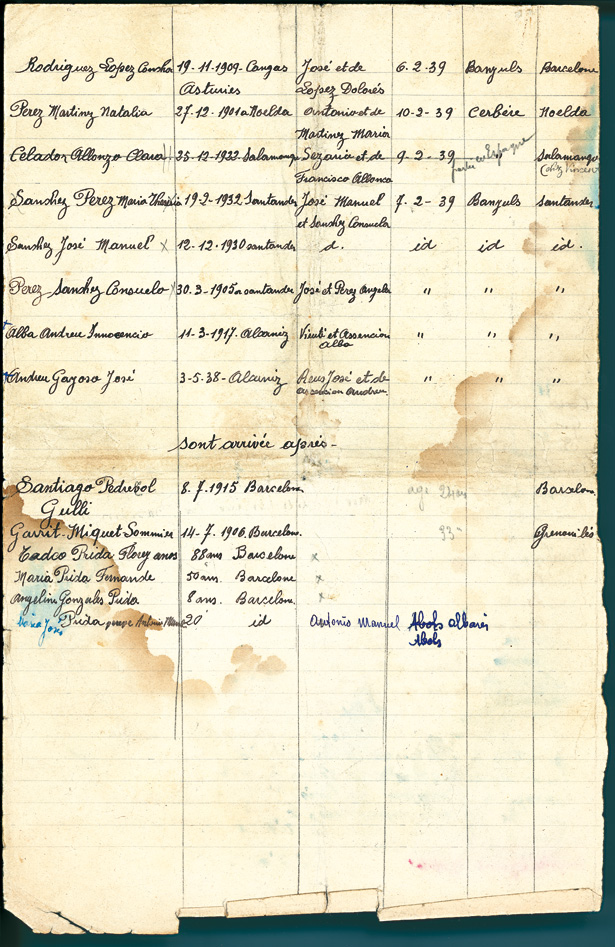 Rodriguez Lopez Concha 19-11-1909-Cangas José et de 6-2-39 Banyuls Barcelone
Asturies Lopez Dolorés
Perez Martinez Natalia 27-12-1901 a Noelda Antonio et de 10-2-39 Cerbère Noelda
Martinez Maria
Celador Allonzo Clara 25-12-1922 Salamange Sezaria et de 9-2-39 partie en Espagne Salamange
Francisco Allonca
Sanchez Perez Maria 19-2-1932 Santander José Manuel 7-2-39 Banyuls Santander
et Sanchez Consuela
Sanchez José Manuel x 12-12-1930 santander d. id id id.
Perez Sanchez Consuelo 30-3-1905 a santander José et Perez Angela " " "
Alba Andreu Innocencio 11-3-1917-Alcaniz et Assencion " " "
Alba
Andreu Gayoso José 3-5-38-Alcaniz José et de " " "
ascension Andreu
sont arrivée aprés-
Santiago Pedrebol 8.7.1915 Barcelone age Barcelone
Gulli
Garrit Miquet Sommier 14-7-1906. Barcelone. 33
Prida 88 ans Barcelone x
Maria Prida Fernande 50 ans. Barcelone x
Angelini Gonzales Prida 8 ans. Barcelone x
José Prida Antonio 20 id Antonio Manuel Abols Albarés
Abols